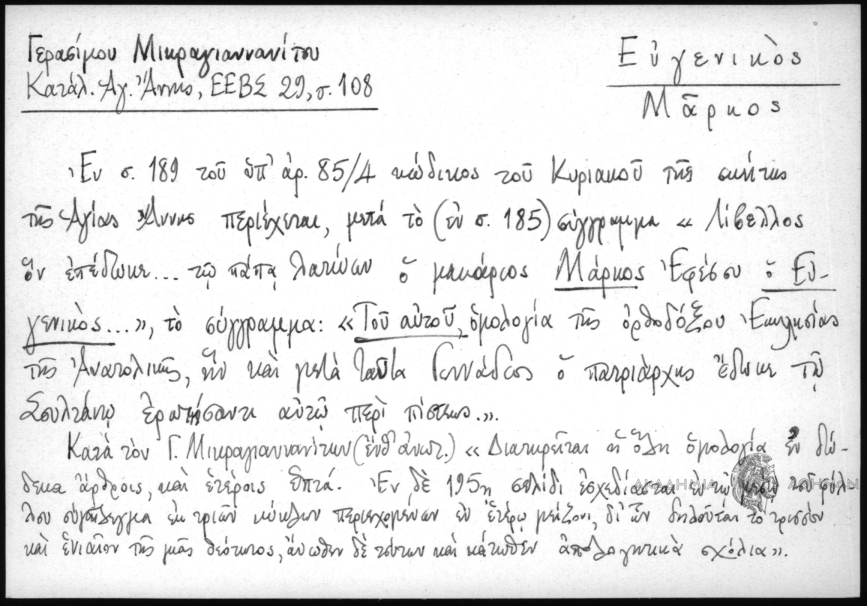 Γερασίμου Μικραγιαννανίτου
Κατάλ. Ἁγ. Ἄννης, ΕΕΒΣ 29, σ. 108
Εὐγενικὸς
Μᾶρκος
Ἐν σ. 189 τοῦ ὑπ' ἀρ. 85/4 κώδικος τοῦ Κυριακοῦ τῆς σκήτης
τῆς Ἁγίας Ἄννης περιέχεται, μετὰ τὸ (ἐν σ. 185) σύγγραμμα « Λίβελλος
ὃν ἐπέδωκε... τῷ πάπᾳ Λατίνων ὁ μακάριος Μάρκος Ἐφέσου ὁ Εὐ-
γενικὸς...», τὸ σύγγραμμα: « Τοῦ αὐτοῦ, ὁμολογία τῆς ὀρθοδόξου Ἐκκλησίας
τῆς Ἀνατολικῆς, ἣν καὶ μετὰ ταῦτα Γεννάδιος ὁ πατριάρχης ἔδωκε τῷ
Σουλτάνῳ ἐρωτήσαντι αὐτῷ περὶ πίστεως.».
Κατὰ τὸν Γ. Μικραγιαννανίτην (ἔνθ' ἀνωτ.) « Διαιρεῖται ἡ ὅλη ὁμολογία ἐν δώ-
δεκα ἄρθροις, καὶ ἑτέροις ἑπτά. Ἐν δὲ 195ῃ σελίδι ἐσχεδίασται ἐν τῷ μέσῳ τοῦ φύλ-
λου σύμπλεγμα ἐκ τριῶν κύκλων περιεχομένων ἐν ἑτέρῳ μείζονι, δι' ὧν δηλοῦται τὸ τρισσὸν
καὶ ἑνιαῖον τῆς μιᾶς θεότητος, ἄνωθεν δὲ τούτων καὶ κάτωθεν ἀπολογητικὰ σχόλια».
ΑΚΑΔΗΜΙΑ ΑΘΗΝΩΝ